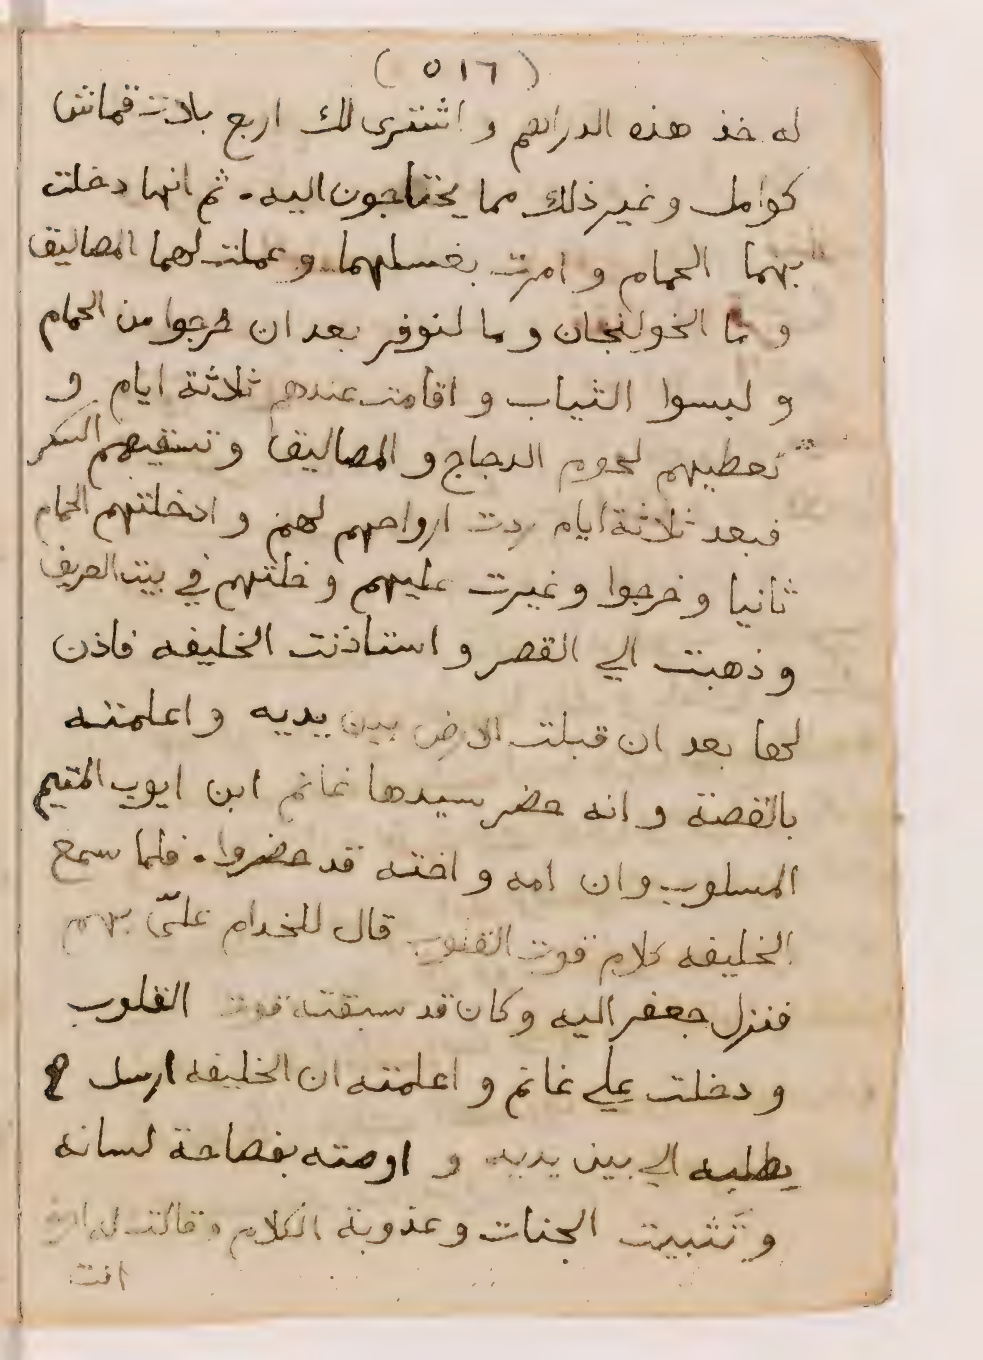 (٥١٦)
له خذ هذه الدراهم و اشترى لك اربع بلادت قماش
كوامل وغير ذلك مما يحتاجون اليه . ثم انها دخلت
بهما الحمام و امرت بغسلهما و عملت لهما المصاليق
و ما الخولنجان و ما لنوفر بعد ان خرجوا من الحمام
و لبسوا الثياب و اقامت عندهم ثلاثة ايام و
تعطيهم لحوم الدجاج و المصاليق وتسقيهم السكر
فبعد ثلاثة ايام ردت ارواحهم لهم و ادخلتهم الحمام
ثانيا وخرجوا وغيرت عليهم و خلتهم في بيت العريف
و ذهبت الي القصر و استاذنت الخليفه فاذن
لها بعد ان قبلت الارض بين يديه و اعلمته
بالقصة و انه حضر سيدها غانم ابن ايوب المتيم
المسلوب وان امه و اخته قد حضروا . فلما سمع
الخليفه كلام قوت القلوب قال للخدام عليّ بهم
فنزل جعفر اليه وكان قد سبقته قوت القلوب
و دخلت علي غانم و اعلمته ان الخليفه ارسل
يطلبه الي بين يديه و اوصته بفصاحة لسانه
و تثبيت الجنات و عذوبة الكلام و قالت له
انت